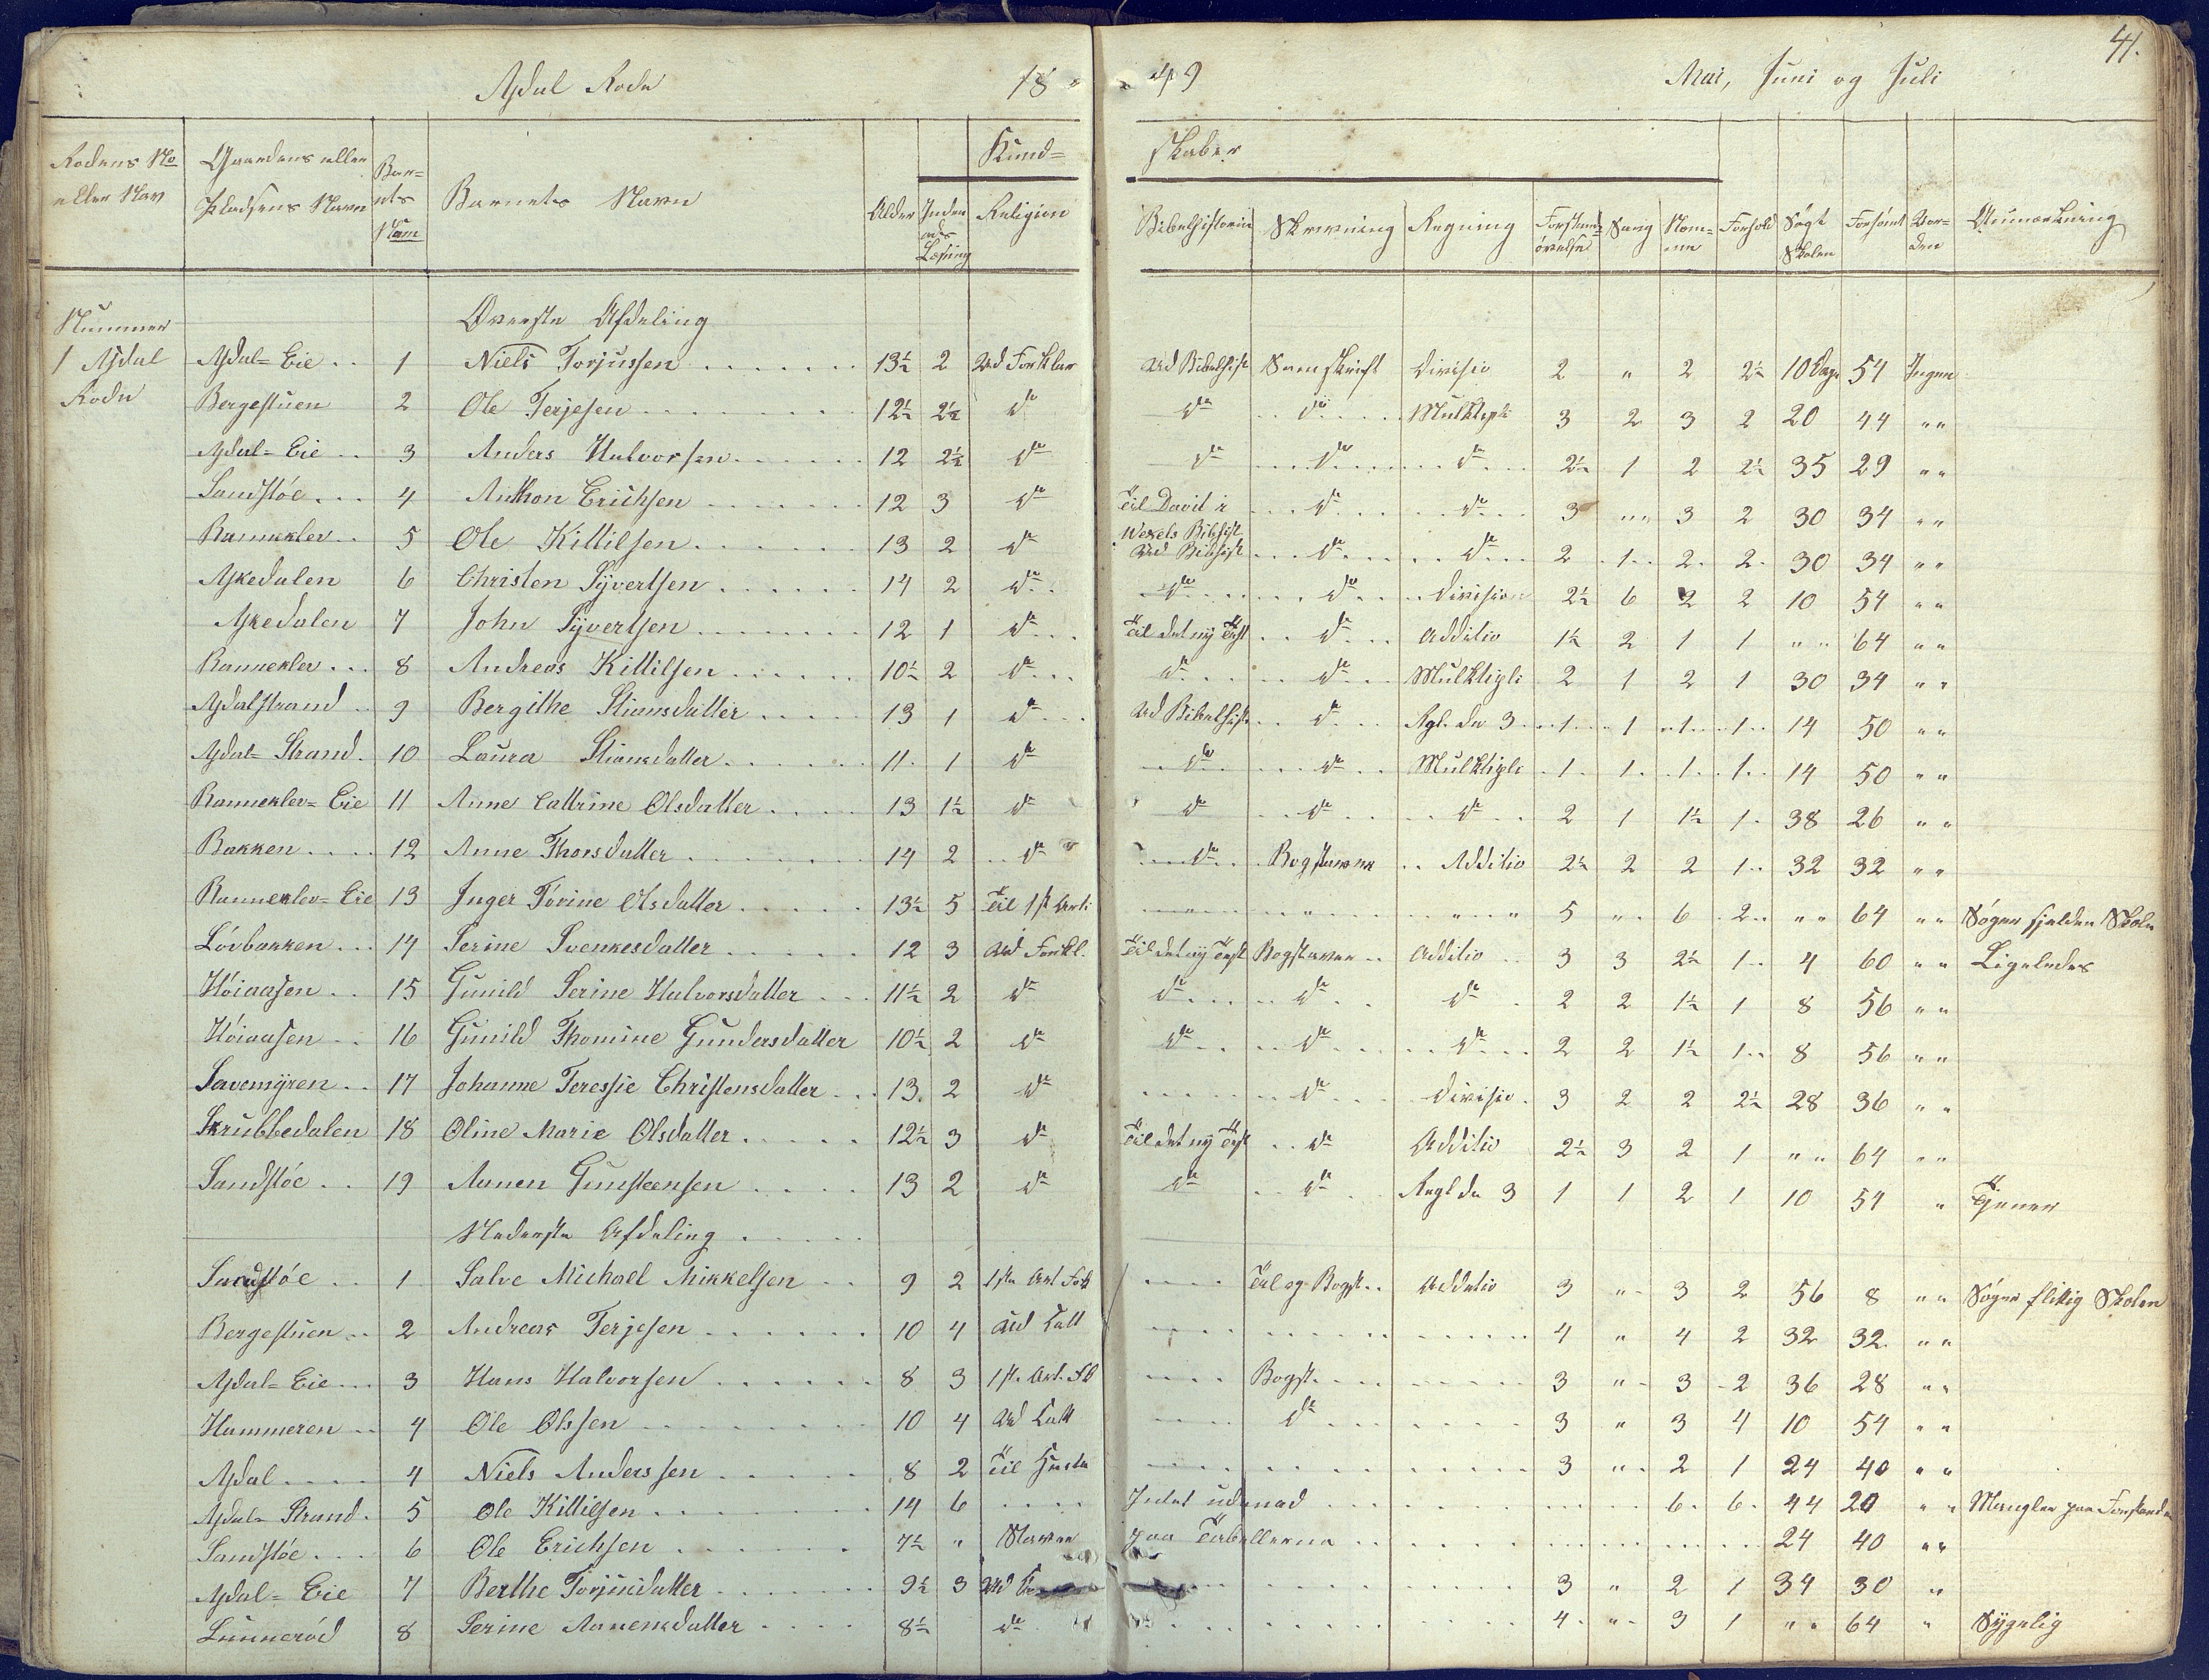 41.
Asdal Rode 1849 Mai, Juni og Juli
Rodens No eller Nav | Gaardens eller Pladsens Navn | Barnets Num | Barnets Navn | Alder | Indenads Læsning | Kundskaber | Religion | Bibelhistorie | Skrivning | Regning | Forstandsøvelse | Sang | Nemme | Forhold | Søgt Skolen | Forsømt | Orden | Anmærkning
Nummer 1 Asdal Rode
Øverste Afdeling
Asdal=Eie | 1 | Niels Torjussen | 13½ | 2 | Ud Forklar | Ud Bibelhist | Samskrift | Divisio | 2 | " | 2 | 2½ | 10 Dage | 54 | Ingen
Bergestuen | 2 | Ole Terjesen | 12½ | 2½ | do | do | do | Multipli | 3 | 2 | 3 | 2 | 20 | 44 | " "
Asdal=Eie | 3 | Anders Halvorsen | 12 | 2½ | do | do | do | do | 2½ | 1 | 2 | 2½ | 35 | 29 | " "
Sandstøe | 4 | Anthon Erichsen | 12 | 3 | do | Til David i Wexels Bibhist | do | do | 3 | " " | 3 | 2 | 30 | 34 | " "
Rannekler | 5 | Ole Kittilsen | 13 | 2 | do | Ud Bibhist | do | do | 2 | 1 | 2 | 2 | 30 | 34 | " "
Askedalen | 6 | Christen Syvertsen | 14 | 2 | do | do | do | Division | 2½ | 6 | 2 | 2 | 10 | 54 | " "
Askedalen | 7 | John Syvertsen | 12 | 1 | do | Til det ny Test | do | Additio | 1½ | 2 | 1 | 1 | " " | 64 | " "
Rannekler | 8 | Andreas Kittilsen | 10½ | 2 | do | do | do | Multipli | 2 | 1 | 2 | 1 | 30 | 34 | " "
Asdalstrand | 9 | Bergithe Stiansdatter | 13 | 1 | do | Ud Bibelhist | do | Rgl. de 3 | 1 | 1 | 1 | 1 | 14 | 50 | " "
Asdal=Strand | 10 | Laura Stiansdatter | 11 | 1 | do | do | do | Multipli | 1 | 1 | 1 | 1 | 14 | 50 | " "
Rannekler=Eie | 11 | Anne Cattrine Olsdatter | 13 | 1½ | do | do | do | do | 2 | 1 | 1½ | 1 | 38 | 26 | " "
Bakken | 12 | Anne Thorsdatter | 14 | 2 | do | do | Bogstaver | Additio | 2½ | 2 | 2 | 1 | 32 | 32 | " "
Rannekler=Eie | 13 | Inger Torine Olsdatter | 13½ | 5 | Til 1st Arti | " | " | " | 5 | " | 6 | 2 | " " | 64 | " " | Søger sjelden Skole
Løvbakken | 14 | Serine Svenkesdatter | 12 | 3 | Ud Forkl. | Til det ny Test | Bogstaver | Additio | 3 | 3 | 2½ | 1 | 4 | 60 | " " | Ligeledes
Høiaasen | 15 | Gunild Serine Halvorsdatter | 11½ | 2 | do | do | do | do | 2 | 2 | 1½ | 1 | 8 | 56 | " "
Høiaasen | 16 | Gunild Thomine Gundersdatter | 10½ | 2 | do | do | do | do | 2 | 2 | 1½ | 1 | 8 | 56 | " "
Savemyren | 17 | Johanne Teressie Christensdatter | 13 | 2 | do | | do | Divisio | 3 | 2 | 2 | 2½ | 28 | 36 | " "
Skrubbedalen | 18 | Oline Marie Olsdatter | 12½ | 3 | do | Til det ny Test | do | Additio | 2½ | 3 | 2 | 1 | " " | 64 | " "
Sandstøe | 19 | Aanen Gunsteensen | 13 | 2 | do | do | do | Regl de 3 | 1 | 1 | 2 | 1 | 10 | 54 | " | Tjener
Nederste Afdeling
Sandstøe | 1 | Salve Michael Mikkelsen | 9 | 2 | 1ste Art Fork | | Tal og Bogst | Additio | 3 | " | 3 | 2 | 56 | 8 | " " | Søger flittig Skolen
Bergestuen | 2 | Andreas Terjesen | 10 | 4 | Ud Catt | | | | 4 | " | 4 | 2 | 32 | 32 | " "
Asdal=Eie | 3 | Hans Halvorsen | 8 | 3 | 1st. Art. | | Bogst. | | 3 | " | 3 | 2 | 36 | 28 | " "
Hammeren | 4 | Ole Olssen | 10 | 4 | Ud Catt | | do | | 3 | " | 3 | 4 | 10 | 54 | " "
Asdal | 4 | Niels Anderssen | 8 | 2 | Til | | | | 3 | " | 2 | 1 | 24 | 40 | " "
Asdal=Strand | 5 | Ole Kittilsen | 14 | 6 | | Intet udenad | | | | | 6 | 6 | 44 | 20 | " " | Mangler paa Forstand
Sandstøe | 6 | Ole Erichsen | 7½ | " | Staver | paa Tabellerne | | | | | | | 24 | 40 | " "
Asdal=Eie | 7 | Berthe Torjusdatter | 9½ | 3 | Ud | | | | 3 | " | 2 | 1 | 34 | 30 | "
Lunnerød | 8 | Serine Aanensdatter | 8½ | | do | | | | 4 | " | 3 | 1 | " " | 64 | " | Sygelig